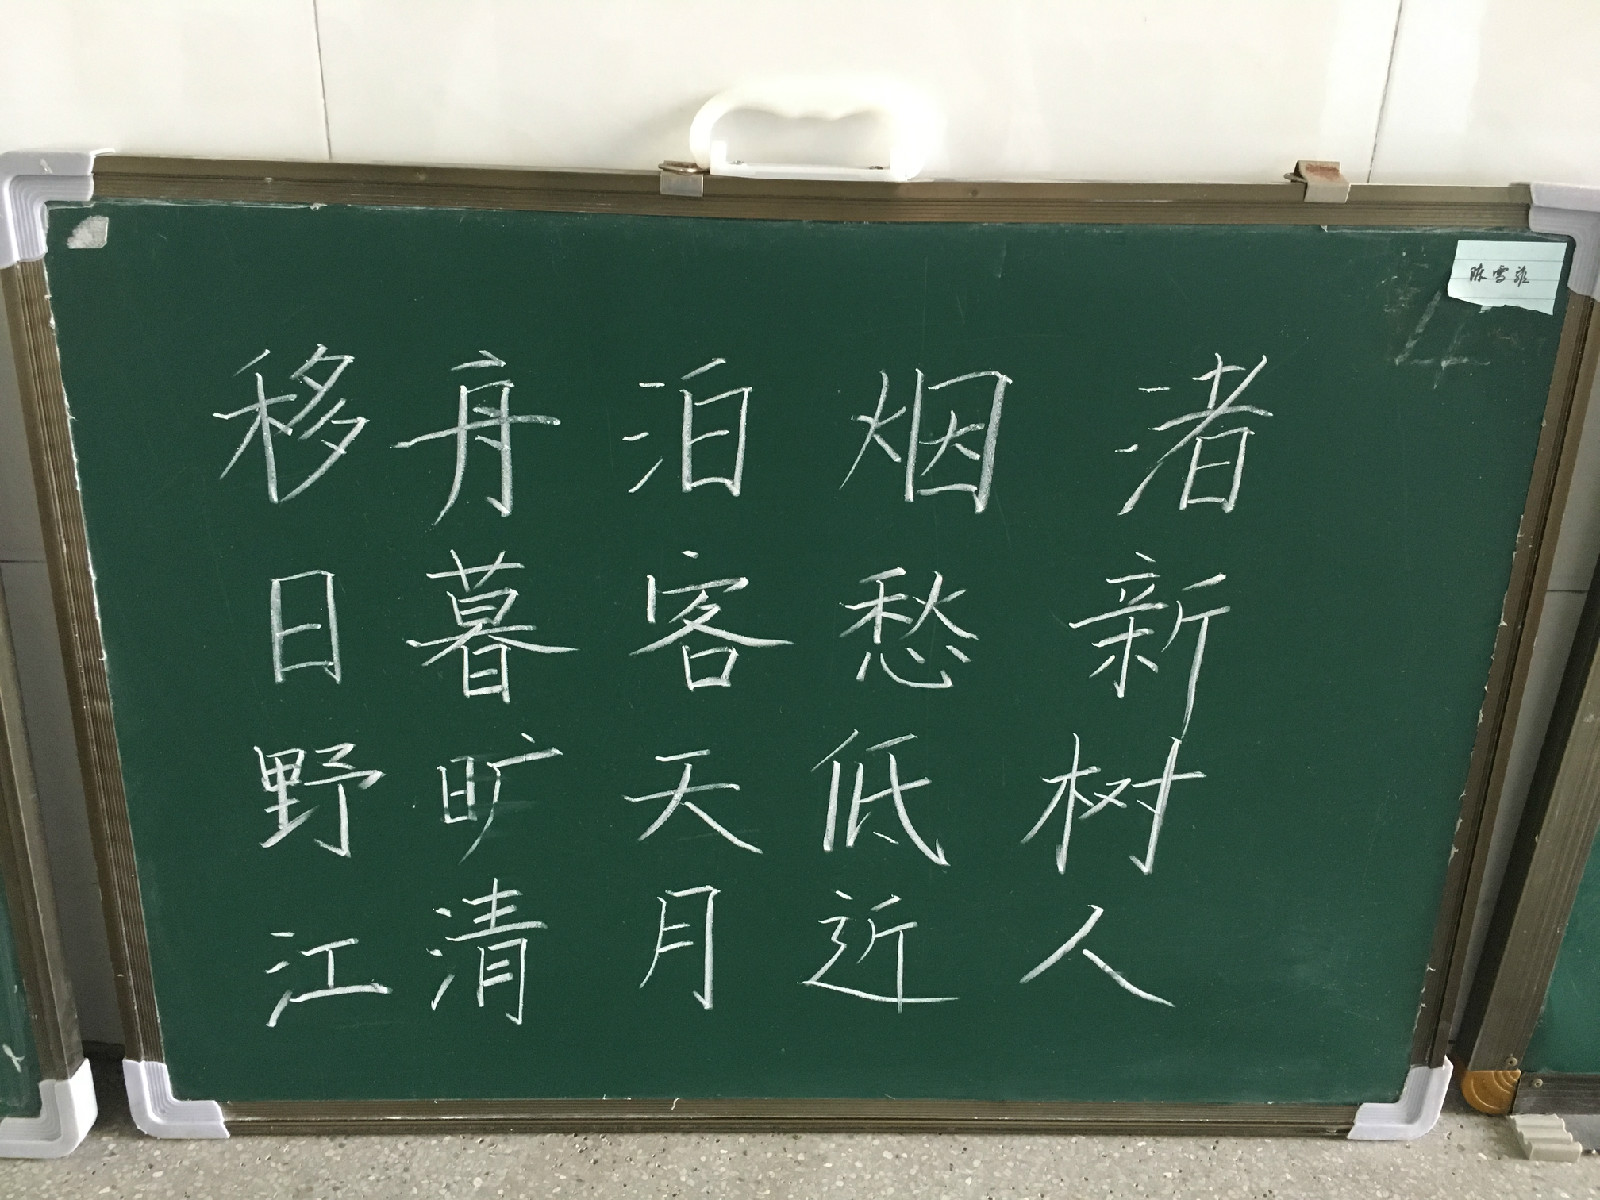 陈雪菲
移舟泊烟渚
日暮客愁新
野旷天低树
江清月近人